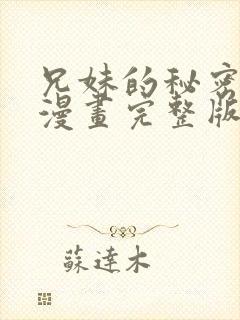 兄妹的秘密
漫畫完整版
蘇達木